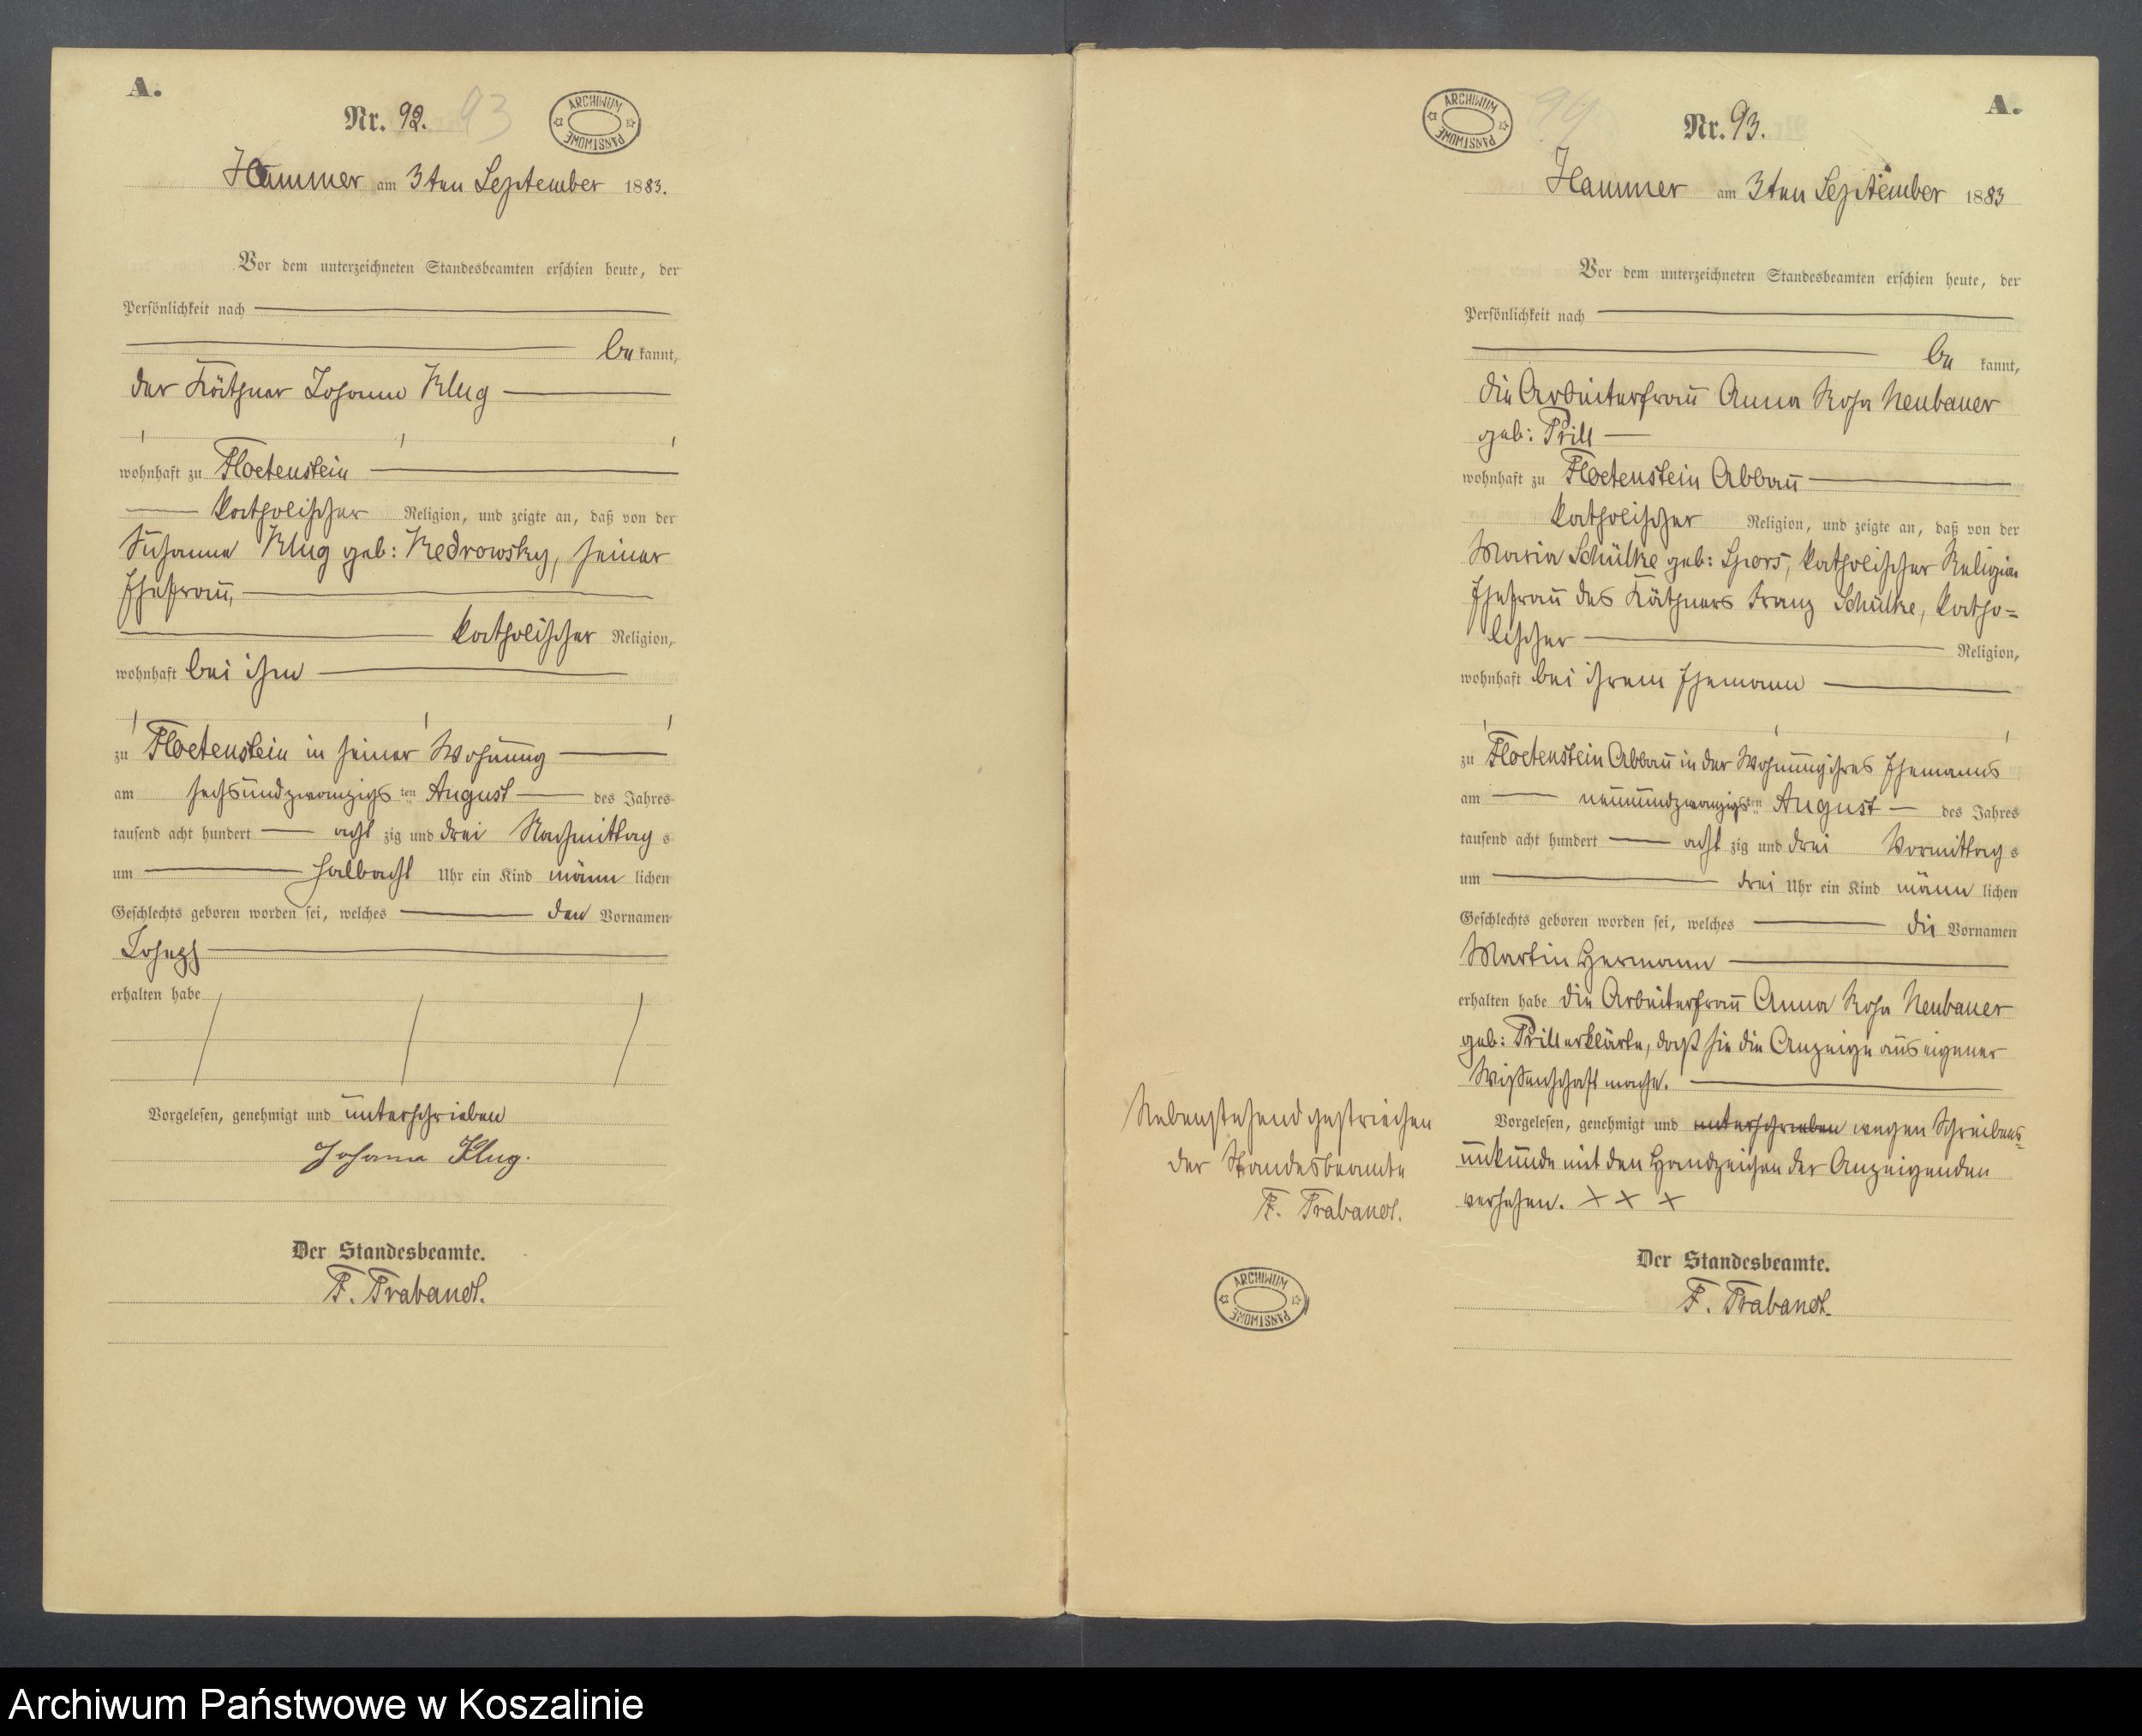 A.
Nr. 92. 93
ARCHIWUM PAŃSTWOWE
Hammer am 3ten September 1883.
Vor dem unterzeichneten Standesbeamten erschien heute, der
Persönlichkeit nach
be kannt,
der Käthner Johann Klug
wohnhaft zu Floetenstein
katholischer Religion, und zeigte an, daß von der
Susanna Klug geb: Kedrowsky, seiner
Ehefrau,
katholischer Religion,
wohnhaft bei ihm
zu Floetenstein in seiner Wohnung
am sechsundzwanzigs ten August des Jahres
tausend acht hundert acht zig und drei Nachmittag s
um halbacht Uhr ein Kind männ lichen
Geschlechts geboren worden sei, welches den Vornamen
Joseph
erhalten habe
Vorgelesen, genehmigt und unterschrieben
Johann Klug.
Der Standesbeamte.
F. Trabandt.
A.
ARCHIWUM PAŃSTWOWE
94
Nr. 93.
Hammer am 3ten September 1883
Vor dem unterzeichneten Standesbeamten erschien heute, der
Persönlichkeit nach
be kannt,
die Arbeiterfrau Anna Rosa Neubauer
geb: Prill
wohnhaft zu Floetenstein Abbau
katholischer Religion, und zeigte an, daß von der
Maria Schülke geb: Spors, katholischer Religion
Ehefrau des Käthners Franz Schülke, katho=
lischer Religion,
wohnhaft bei ihrem Ehemann
zu Floetenstein Abbau in der Wohnung ihres Ehemanns
am neunundzwanzigs ten August des Jahres
tausend acht hundert acht zig und drei Vormittag s
um drei Uhr ein Kind männ lichen
Geschlechts geboren worden sei, welches die Vornamen
Martin Hermann
erhalten habe die Arbeiterfrau Anna Rosa Neubauer
geb: Prill erklärte, daß sie die Anzeige aus eigener
Wißenschaft mache.
Vorgelesen, genehmigt und unterschrieben wegen Schreibens=
unkunde mit den Handzeichen der Anzeigenden
versehen. X X X
Der Standesbeamte.
F. Trabandt.
Nebenstehend gestrichen
der Standesbeamte
F. Trabandt.
ARCHIWUM PAŃSTWOWE
Archiwum Państwowe w Koszalinie